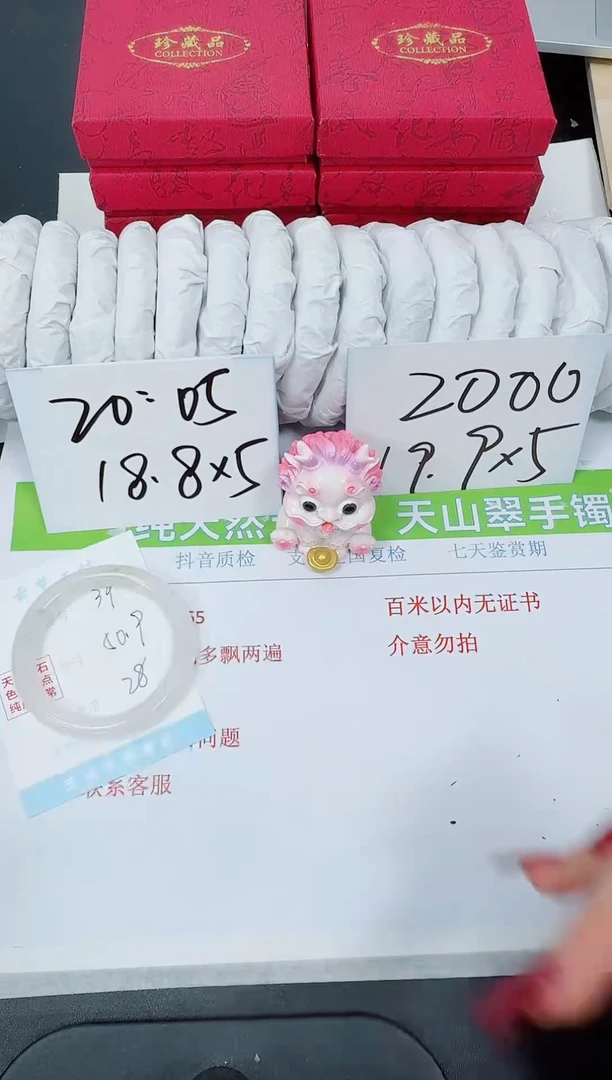 珍藏品
COLLECTION
珍藏品
COLLECTION
20:05
18.8×5
2000
19.9×5
纯天然
天山翠手镯
抖音质检
国复检
七天鉴赏期
百米以内无证书
多飘两遍
介意勿拍
39
50.9
28
石点常
天色纯
问题
联系客服